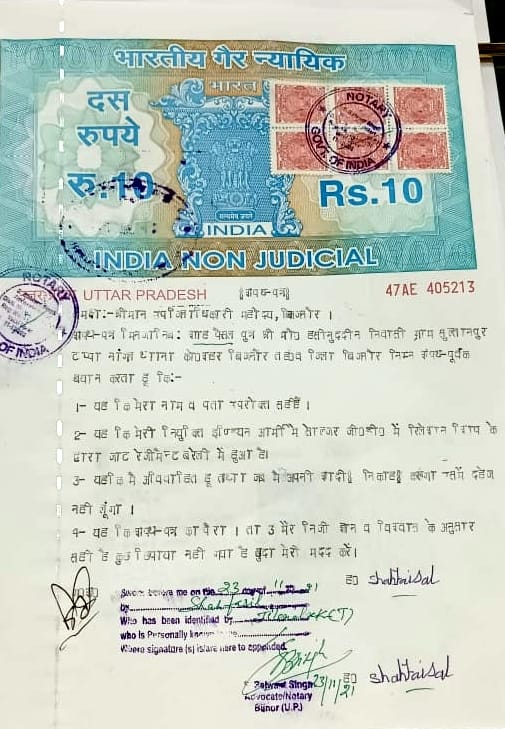 भारतीय गैर न्यायिक
भारत
दस
रुपये
रु.10
Rs.10
NOTARY
GOVT. OF INDIA
सत्यमेव जयते
INDIA
INDIA NON JUDICIAL
UTTAR PRADESH
47AE 405213
शपथ-पत्र
NOTARY
OF INDIA
समक्षः-श्रीमान अधिकारी महोदय, बिजनौर ।
शपथ-पत्र मिनजानिबः शाह फैसल पुत्र श्री मौ0 हसीनुददीन निवासी ग्राम सुल्तानपुर
थाना बिजनौर तहo व जिला बिजनौर निम्न शपथ-पूर्वक
बयान करता हू कि:-
1- यह कि मेरा नाम व पता उपरोक्त सही है ।
2- यह कि मेरी नियुक्ति इण्डियन आर्मी मे सोल्जर जी0डी0 में रिलेशन के
द्वारा जाट रेजीमेन्ट बरेली में हुआ है।
3- यह कि मै अविवाहित हू तथा जब मै अपनी शादी निकाह करूंगा उसमें दहेज
नही लूँगा ।
4- यह कि शपथ-पत्र का पैरा 1 ता 3 मेरे निजी ज्ञान व विश्वास के अनुसार
सही है कुछ छिपाया नही गया है खुदा मेरी मदद करें।
ह0 shahfaisal
Sworn before me on the 23 day of 11 21
by Shah faisal
Who has been identified by
who is Personally known to me
Whose signature (s) is/are here to appended.
23/11/21
Balwant Singh
Advocate/Notary
Bijnor (U.P.)
ह0 shahfaisal